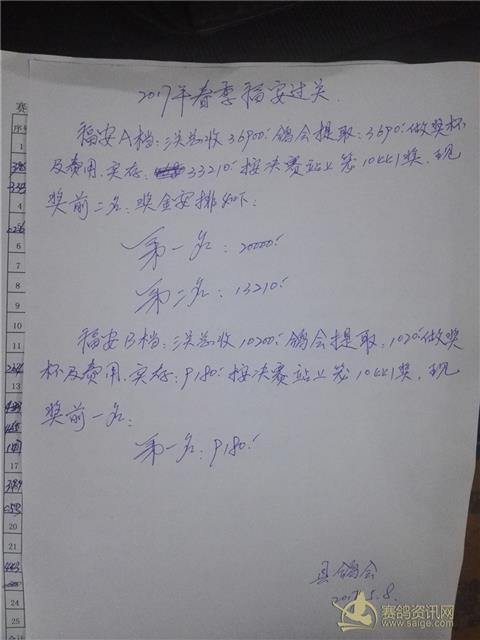 2017年春季福安过关
福安A档：三关总收36900.鸽会提取：3690.做奖杯
及费用.实存：33210.按决赛站上笼10比1奖.现
奖前二名.奖金安排如下：
第一名：20000.
第二名：13210.
福安B档：三关总收10200.鸽会提取：1020.做奖
杯及费用.实存：9180.按决赛站上笼10比1奖.现
奖前一名：
第一名：9180.
县鸽会
2017.5.8.
赛
序号
1
4
6
7
8
9
10
11
13
17
20
21
24
25
赛鸽资讯网
www.saige.com